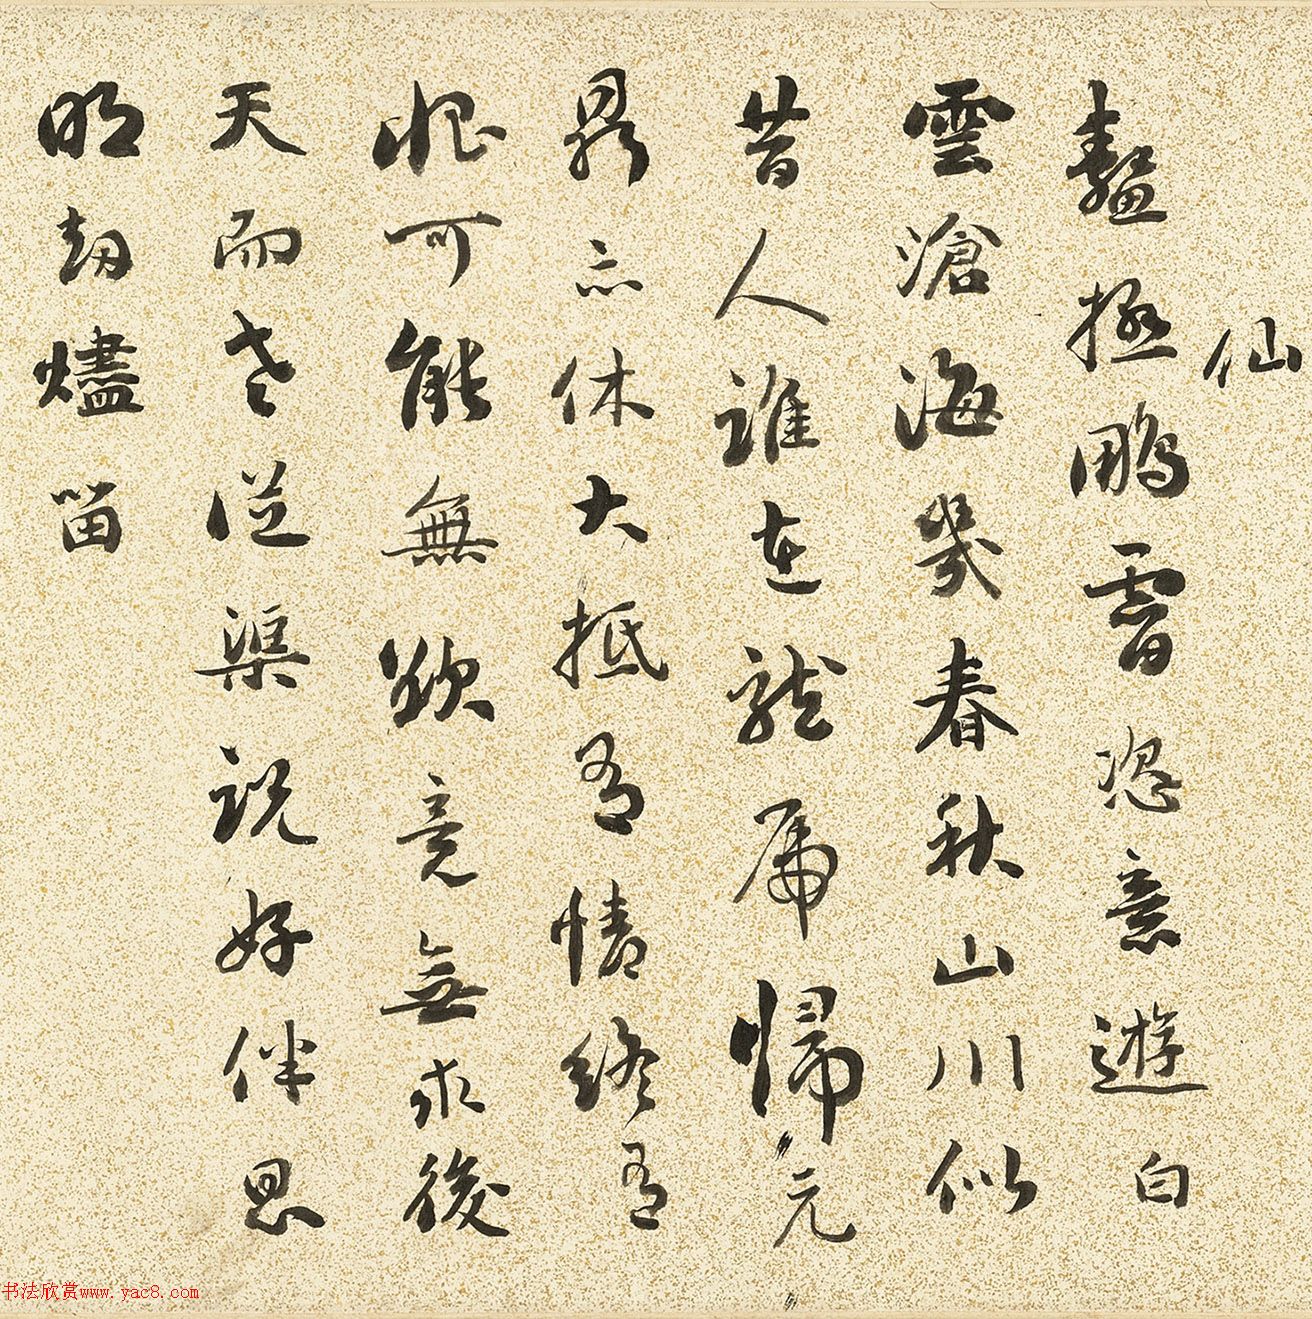 仙
鼇極鵬霄恣意遊白
雲滄海幾春秋山川似
昔人誰在龍虎歸元
鼎亦休大抵有情終有
恨可能無欲竟無求後
天而老從渠說好伴昆
明劫燼留
书法欣赏www.yac8.com